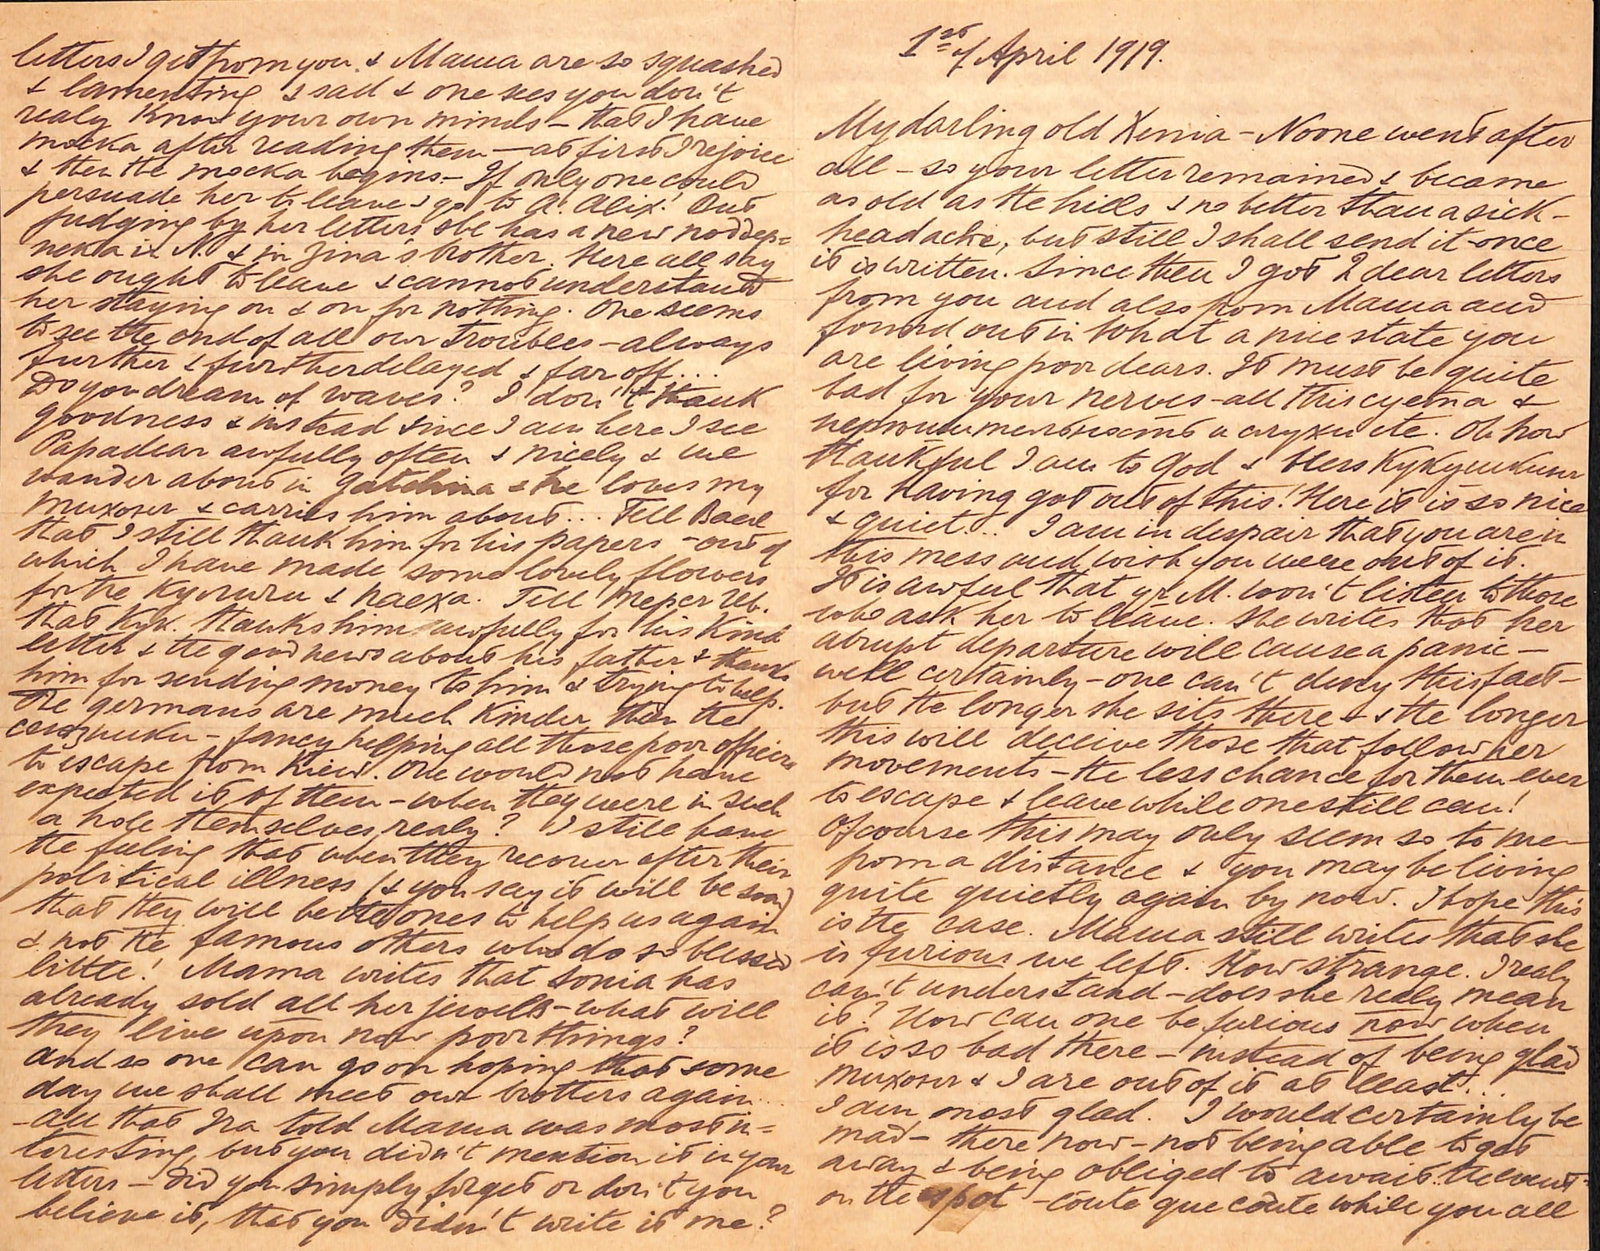 1st of April 1919.
My darling old Xenia - No one went after
all - so your letter remained & became
as old as the hills & no better than a sick-
headache, but still I shall send it once
it is written. Since then I got 2 dear letters
from you and also from Mama and
found out in what a nice state you
are living poor dears. It must be quite
bad for your nerves - all this суета &
. Oh how
thankful I am to God & bless Кукушкин
for having got out of this! Here it is so nice
& quiet!.. I am in despair that you are in
this mess and wish you were out of it.
It is awful that yr M. won't listen to those
who ask her to leave. She writes that her
abrupt departure will cause a panic -
well certainly - one can't deny this fact -
but the longer she sits there - & the longer
this will deceive those that follow her
movements - the less chance for them ever
to escape & leave while one still can!
Of course this may only seem so to me
from a distance & you may be living
quite quietly again by now. I hope this
is the case. Mama still writes that she
is furious we left. How strange. I realy
can't understand - does she realy mean
it? How can one be furious now when
it is so bad there - instead of being glad
Тихон & I are out of it at least!..
I am most glad. I would certainly be
mad - there now - not being able to get
away & being obliged to await the event
on the spot - coute que coute while you all
letters I get from you & Mama are so squashed
& lamenting & sad & one sees you don't
realy know your own minds - that I have
тоска after reading them - at first I rejoice
& then the тоска begins - If only one could
persuade her to leave & go to A. Alix! But
judging by her letters she has a new поддер=
жка in N. & in Zina's brother. Here all say
she ought to leave & cannot understand
her staying on & on for nothing. One seems
to see the end of all our troubles - always
further & further delayed & far off...
Do you dream of waves? I don't thank
goodness & instead since I am here I see
Papa dear awfully often & nicely & we
wander about in Gatchina & he loves my
Тихон & carries him about... Tell Васил
that I still thank him for his papers - out of
which I have made some lovely flowers
for the & Пасха. Tell
that Кук. thanks him awfully for his kind
letter & the good news about his father & thanks
him for sending money to him & trying to help.
The germans are much kinder than the
союзники - fancy helping all those poor officers
to escape from Kiew. One would not have
expected it of them - when they were in such
a hole themselves, realy? I still have
the feeling that when they recover after their
political illness (& you say it will be soon)
that they will be the ones to help us again
& not the famous others who do so blessed
little! Mama writes that Sonia has
already sold all her jewells - what will
they live upon now poor things?
And so one can go on hoping that some
day we shall meet our brothers again...
- all that Ira told Mama was most in=
teresting, but you didn't mention it in your
letters - Did you simply forget or don't you
believe it, that you didn't write it me?